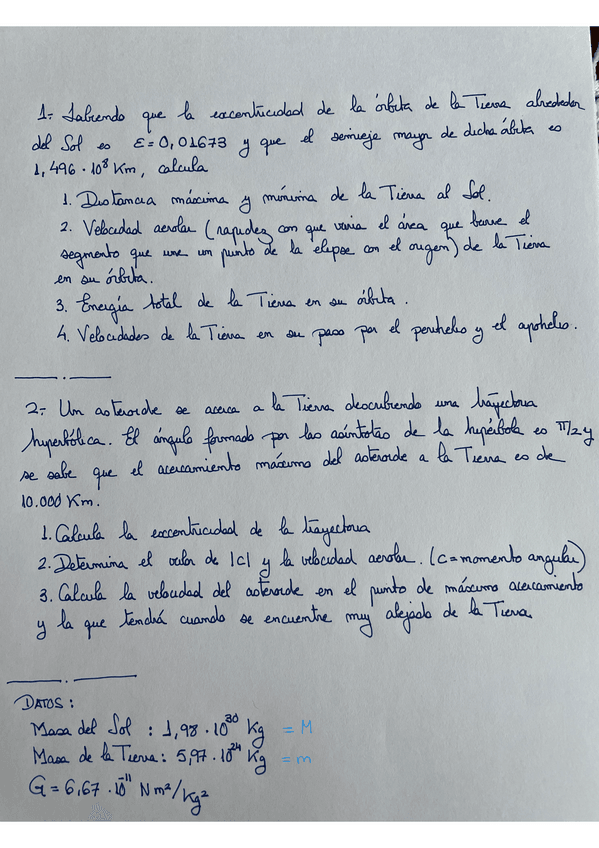 1.- Sabiendo que la excentricidad de la órbita de la Tierra alrededor
del Sol es ε = 0,01673 y que el semieje mayor de dicha órbita es
1,496 · 10⁸ Km, calcula
1. Distancia máxima y mínima de la Tierra al Sol.
2. Velocidad aerolar (rapidez con que varia el área que barre el
segmento que une un punto de la elipse con el origen) de la Tierra
en su órbita.
3. Energía total de la Tierra en su órbita.
4. Velocidades de la Tierra en su paso por el perihelio y el apohelio.
2.- Un asteroide se acerca a la Tierra describiendo una trayectoria
hiperbólica. El ángulo formado por las asíntotas de la hipérbola es π/2 y
se sabe que el acercamiento máximo del asteroide a la Tierra es de
10.000 Km.
1. Calcula la excentricidad de la trayectoria
2. Determina el valor de |c| y la velocidad aerolar. (c = momento angular)
3. Calcula la velocidad del asteroide en el punto de máximo acercamiento
y la que tendrá cuando se encuentre muy alejado de la Tierra
DATOS:
Masa del Sol : 1,98 · 10³⁰ Kg = M
Masa de la Tierra : 5,97 · 10²⁴ Kg = m
G = 6,67 · 10⁻¹¹ N m²/Kg²